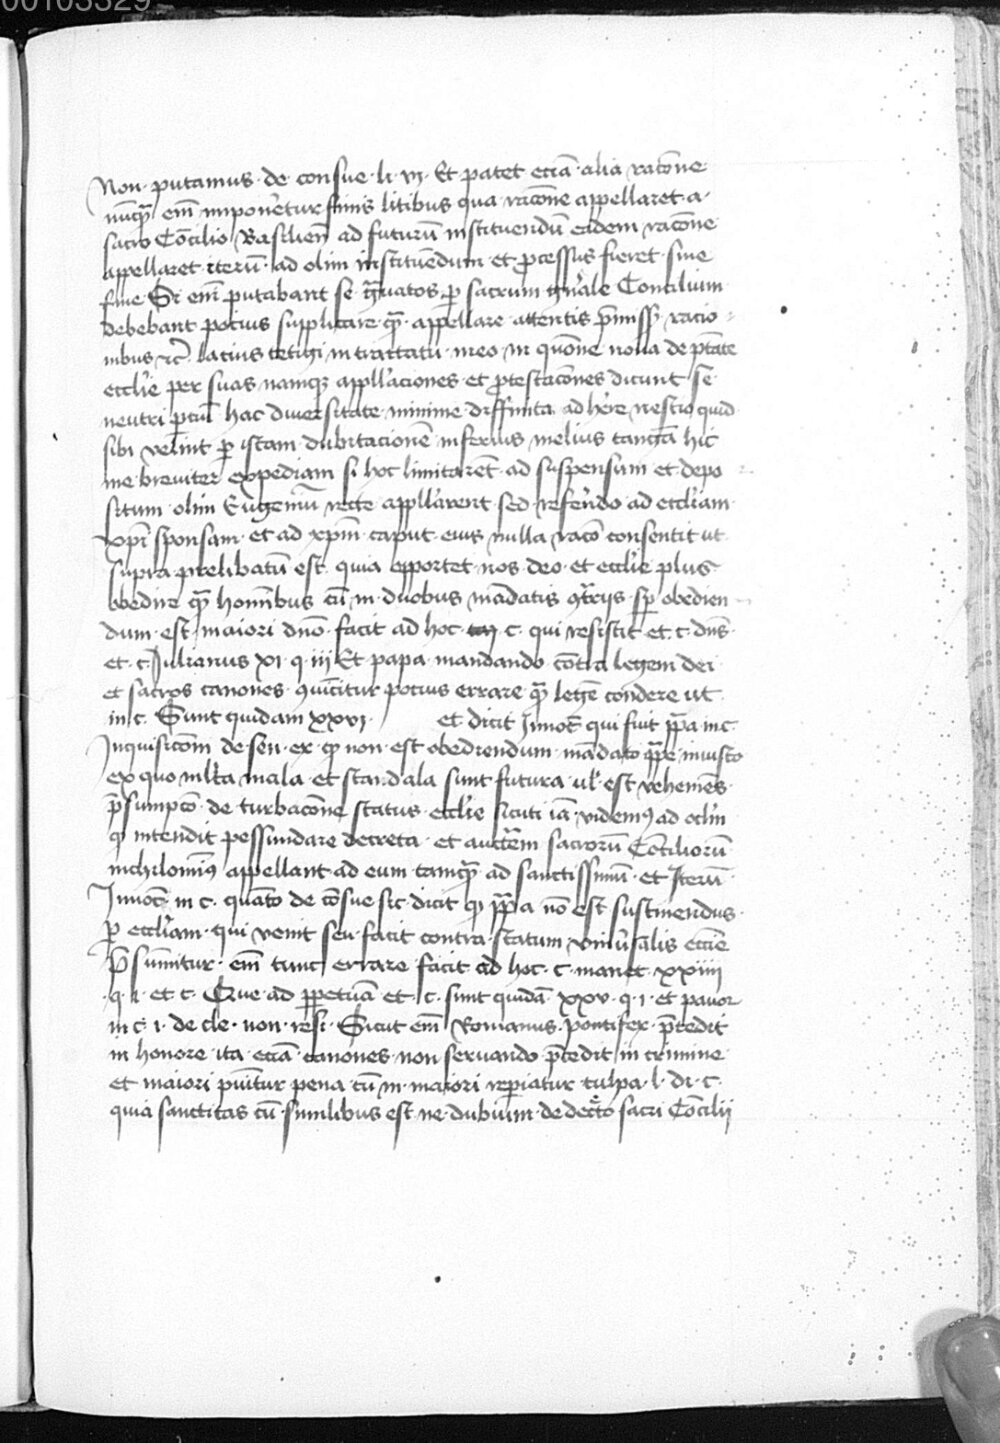 00103329
Non putamus de consue. li. vj. Et patet eciā alia racōne
nūqȝ em̄ imponeretur finis litibus qua racōne appellaret a
sacro Cōcilio Basilien̄ ad futurū instituendū eadem racōne
appellaret iterū ad olim instituēdum et ꝓcessus fieret sine
fine Si em̄ putabant se gͣuatos ꝑ sacrum gn̄ale Concilium
debebant pocius supplicare qͣ appellare attentis p̄miss racio
nibus ꝛc̄ lacius tetigi in tractatu meo in quōne noua de ptāte
eccl'ie per suas namqȝ appll'aciones et ꝓtestacōnes dicunt se
neutri ꝑcīū hac diuersitate minime diffinita adh'ere nescio quid
sibi velint ꝑ istam dubitacionē inferius melius tangā hic
me breuiter expediam si hoc limitarēt ad suspensum et depo
situm olim Eugeniū recte appll'arent sed refer'ndo ad eccl'iam
xpī sponsam et ad xpm̄ caput eius nulla racō consentit ut
supra prelibatū est quia opportet nos deo et eccl'ie plus
obedire qͣ hominibus cū in duobus mādatis ꝯtrijs sp̄ obedien
dum est maiori dn̄o facit ad hoc c. qui resistit et c. dn̄s
et c. Julianus xi q iij Et papa mandando cōtra legem dei
et sacros canones ꝯuīcitur pocius errare qͣ legē condere ut
in c. Sunt quidam xxvj. et dicit Innoc̄ qui fuit ppa in c.
Inquisicōm de sen. ex. qꝫ non est obediendum mādato ppe iniusto
ex quo mlta mala et scandala sunt futura ul' est vehemēs
p̄sumpcō de turbacōne status eccl'ie sicuti iā videmꝰ ad oclm
qꝫ intendit pessundare decreta et auctem̄ sacrorū Cōciliorū
nichilominꝰ appellant ad eum tamqͣ ad sanctissimū et Iterū
Innoc̄ in c. quāto de cōsue sic dicit qꝫ ppa nō est sustinendus
ꝑ eccl'iam qui venit seu facit contra statum vniu'salis eccīe
P̄sumitur em̄ tunc errare facit ad hoc c. manet xxiiij
q. i. et c. Que ad ꝑpetuā et c. sunt quidā xxv. q. i. et pauor
in c. i. de cle. non resi. Sicut em̄ Romanus pontifex p̄cedit
in honore ita eciā canones non seruando p̄cedit in crimine
et maiori punitur pena cū in maiori repiatur culpa l. di. c.
quia sanctitas cū similibus est ne dubium de decto sacri Cōcilij